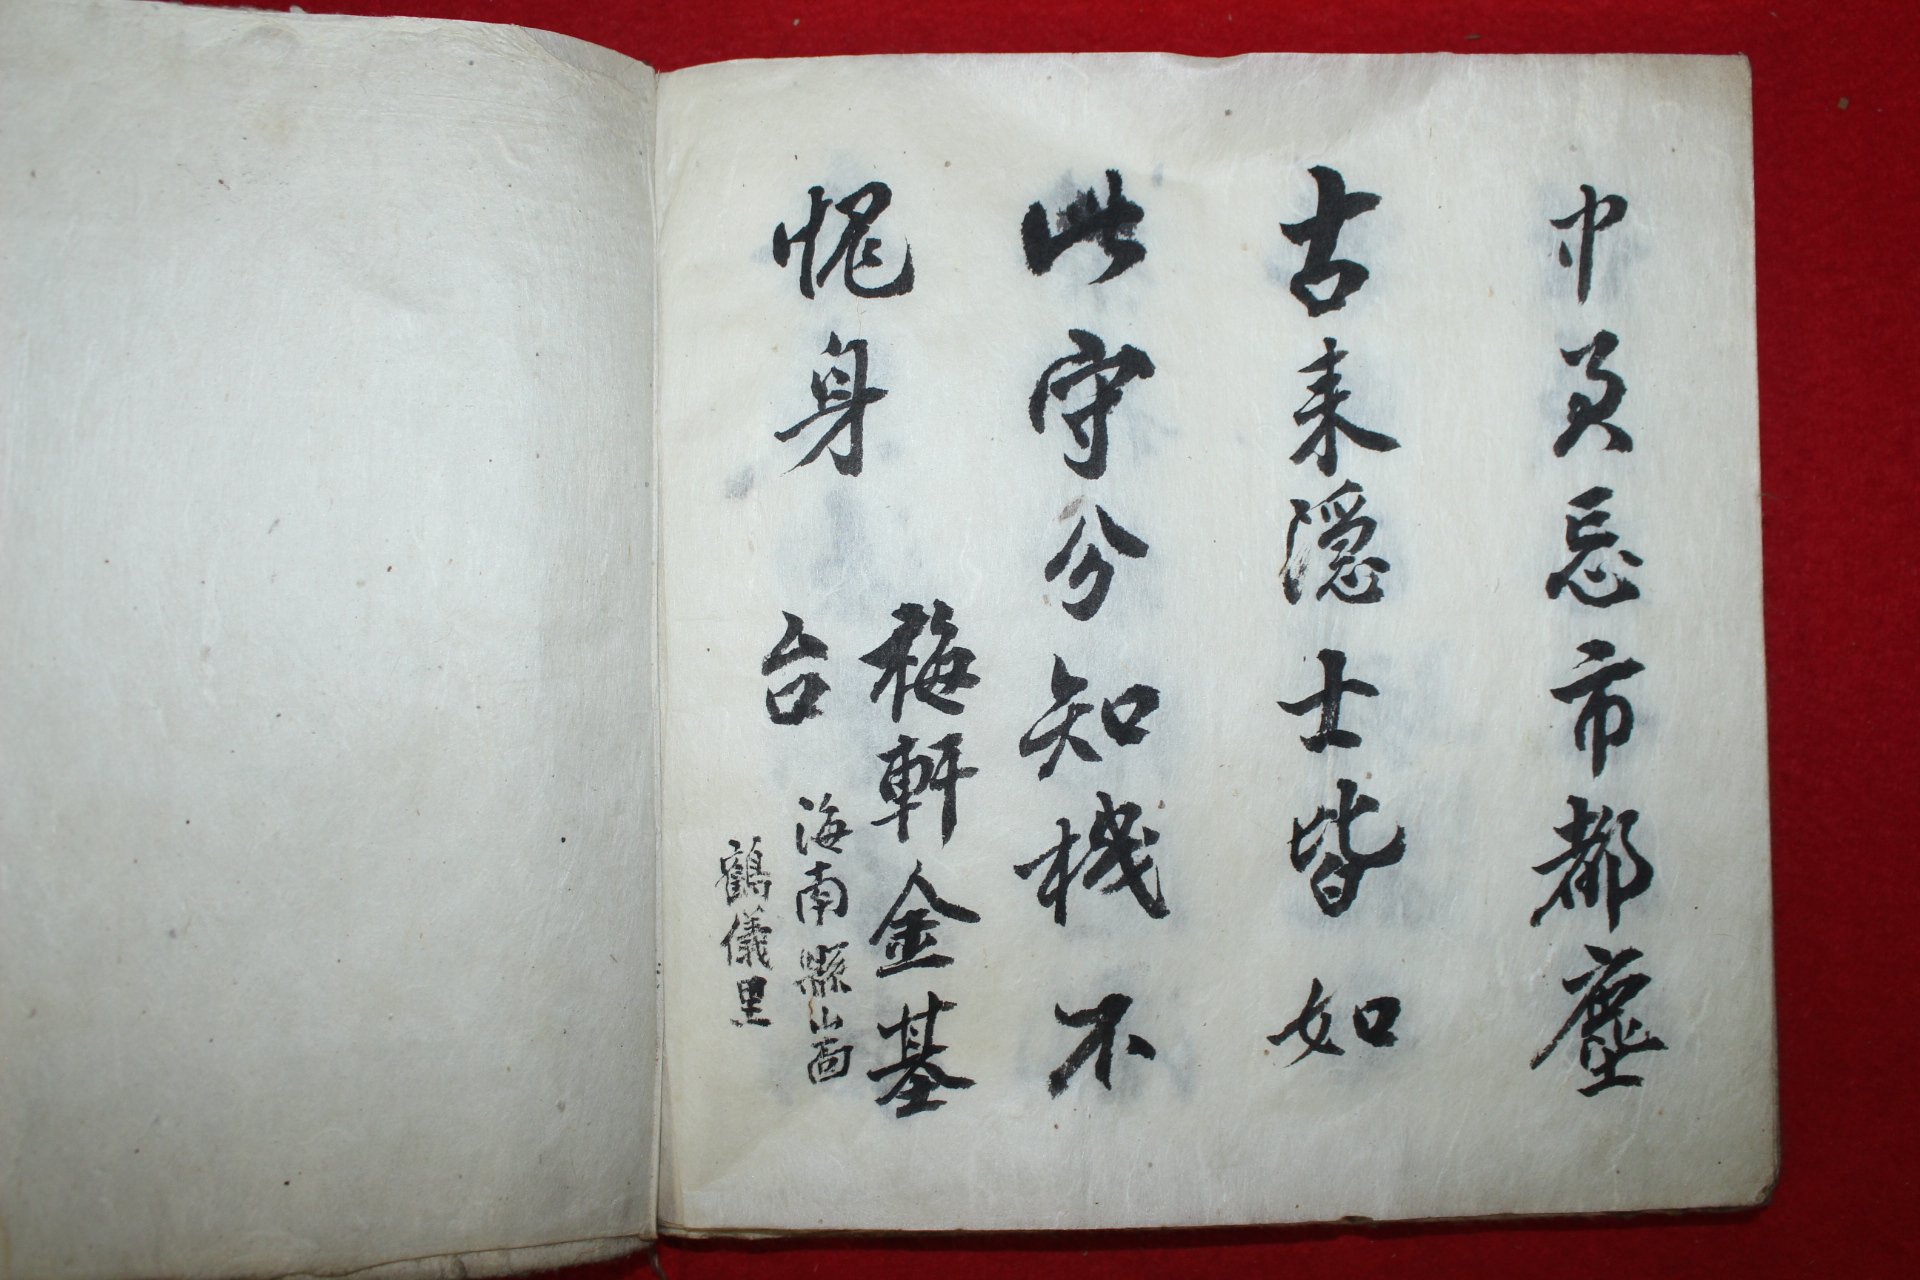 中奐忘市都塵
古来隠士皆如
此守分知機不
愧身
梅軒金基
台
海南縣山面
鶴儀里